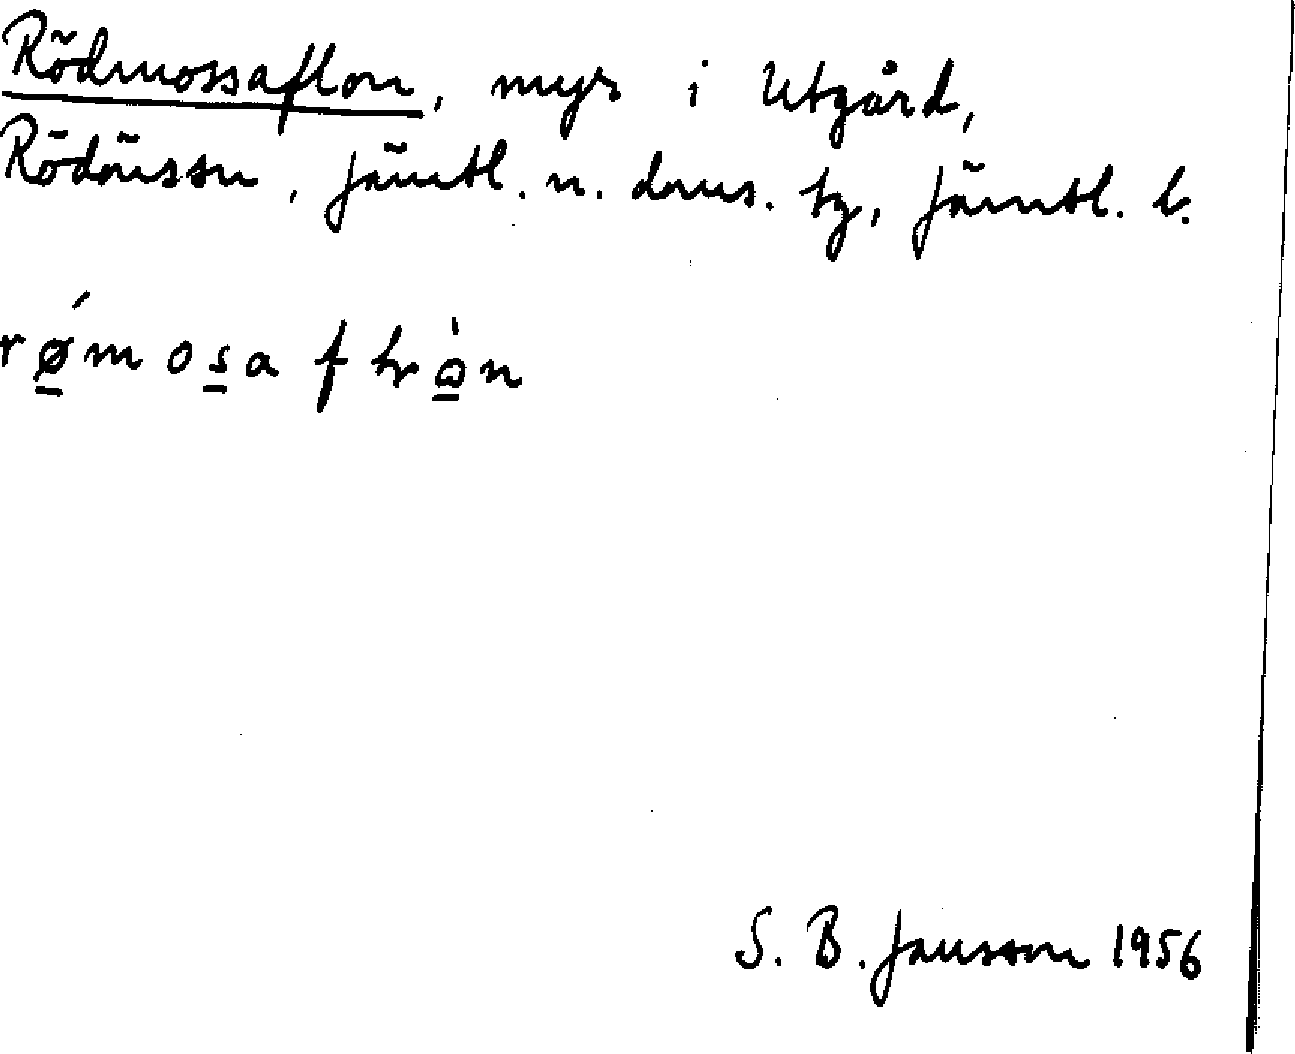 Rödmossaflon, myr i Utgård,
Rödöns sn, Jämtl. n. doms. tg, Jämtl. l.
rǿmosa f
S. B. Jansson 1956